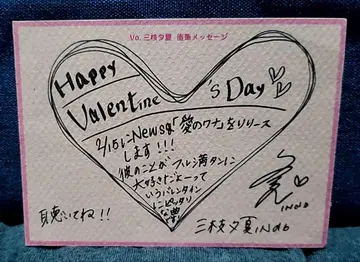 Vo. 三枝夕夏 直筆メッセージ
Happy
Valentine
's Day
2/15にNews「愛のワナ」をリリース
します!!!
彼のことがフルし満タンに
大好きだよーって
いうバレンタイン
にピッタリ
な曲
聴いてね!!
三枝夕夏 IN db
IN db